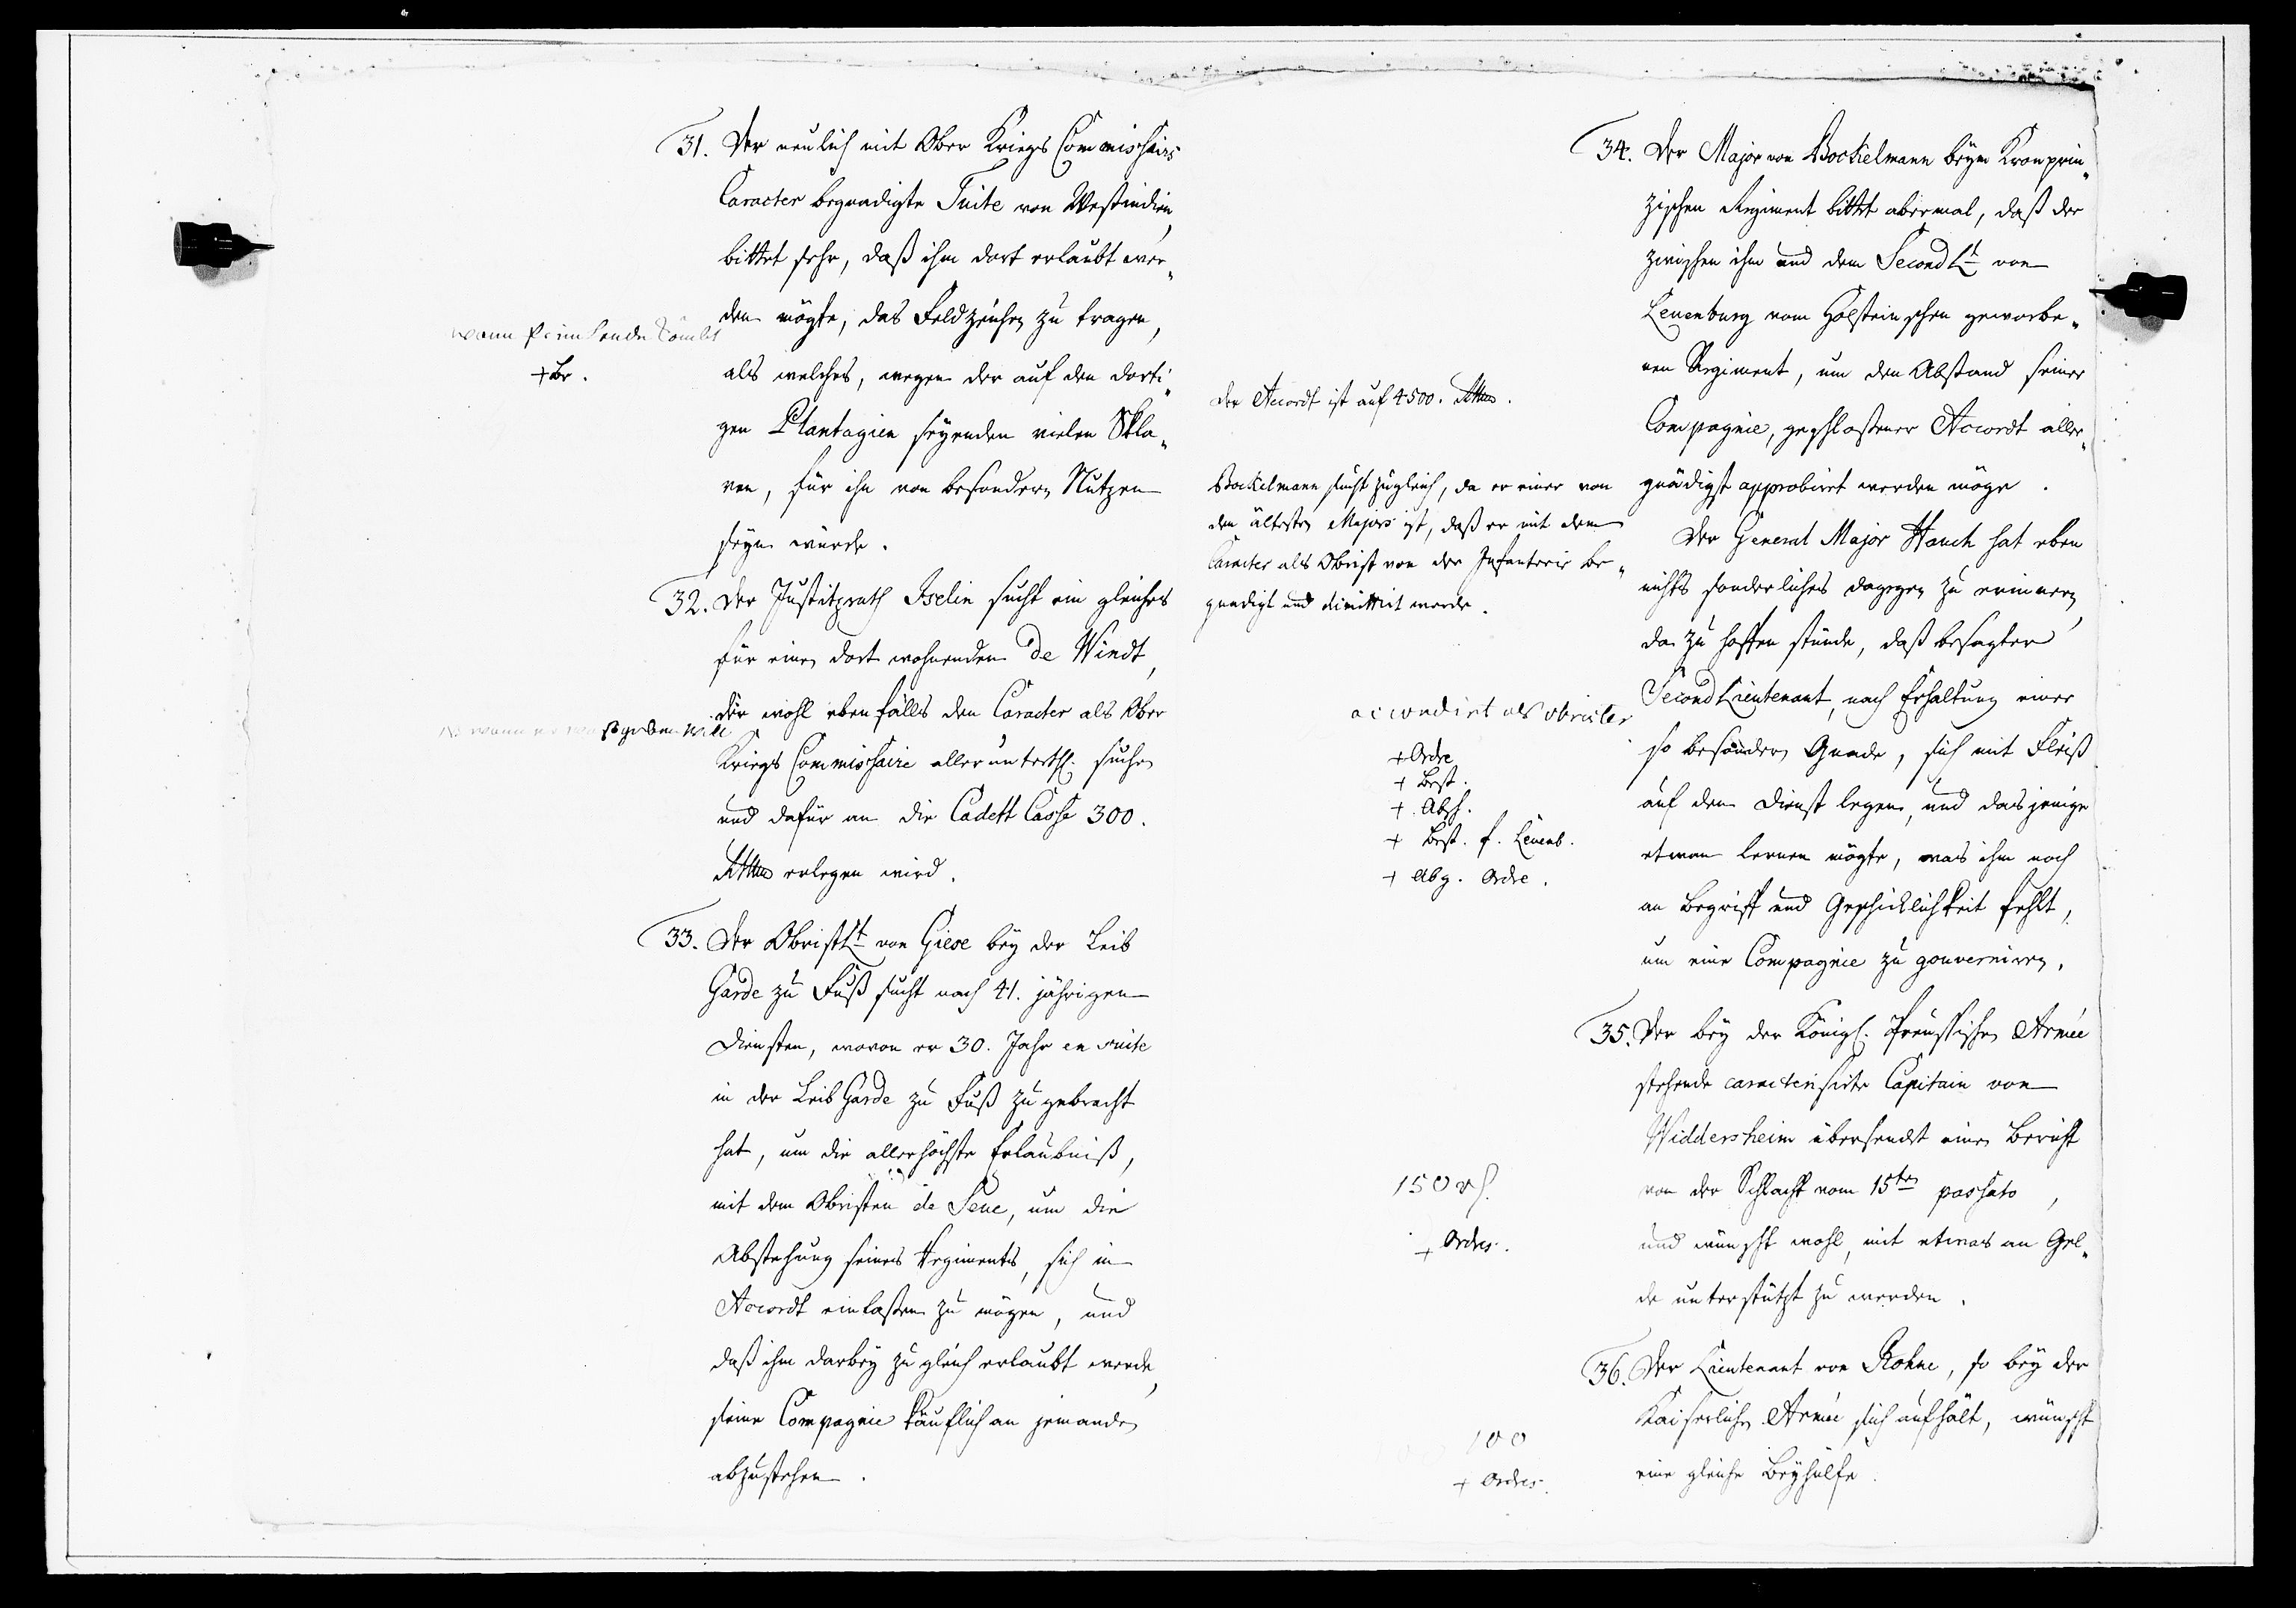 31. Der neulich mit Ober Kriegs Commissairs
Caracter begnadigte Tuite von Westindien,
bittet sehr, daß ihm dort erlaubt wer„
den mögte, das Feldzeichen zu tragen,
als welches, wegen der auf den dorti„
gen Plantagien seyenden vielen Skla„
ven, für ihn von besondern Nutzen
seyn würde.
wann kömbt
+ Br.
32. Der Justitzrath Iselin sucht ein gleiches
für einen dort wohnenden de Windt,
der wohl ebenfalls den Caracter als Ober
Kriegs Commissaire allerunterth. suchen
und dafür an die Cadett Casse 300.
Rthlr erlegen wird.
wann er geben will
33. Der ObristLt von Giese bey der Leib
Garde zu Fuß sucht nach 41. jährigen
Diensten, wovon er 30. Jahr en suite
in der Leib Garde zu Fuß zugebracht
hat, um die allerhöchste Erlaubniß,
mit dem Obristen de Seue, um die
Abstehung seines Regiments, sich in
Accordt einlaßen zu mögen, und
daß ihm darbey zugleich erlaubt werde,
seine Compagnie käuflich an jemanden
abzustehen.
34. Der Major von Bockelmann beym Kronprin„
zischen Regiment bittet abermal, daß der
zwischen ihm und dem Second Lt von
Leuenburg vom Holsteinschen geworbe„
nen Regiment, um den Abstand seiner
Compagnie, geschloßener Accordt aller„
gnädigst approbiret werden möge.
Der General Major Hauch hat eben
nichts sonderliches dagegen zu erinnern,
da zu hoffen stünde, daß besagter
Second Lieutenant, nach Erhaltung einer
so besondern Gnade, sich mit Fleiß
auf den Dienst legen, und dasjenige
etwan lernen mögte, was ihm noch
an Begriff und Geschicklichkeit fehlt,
um eine Compagnie zu gouverniren.
Der Accordt ist auf 4500. Rthlr.
Bockelmann sucht zugleich, da er einer von
den ältesten Majors ist, daß er mit dem
Caracter als Obrist von der Infanterie be„
gnadigt und dimittirt werde.
accordirt als obrister
+ Ordre
+ Best.
+ Absch.
+ Best. f. Leuenb.
+ Abg. Ordre.
35. Der bey der Königl. Preussischen Armée
stehende caracterisirte Capitain von
Widdersheim übersendet einen Bericht
von der Schlacht vom 15ten passato,
und wünscht wohl, mit etwas an Gel„
de unterstützt zu werden.
150 r
+ Ordres.
36. Der Lieutenant von Rohne, so bey der
Kaiserlichen Armée sich aufhält, wünscht
eine gleiche Beyhülfe.
100
+ Ordres.